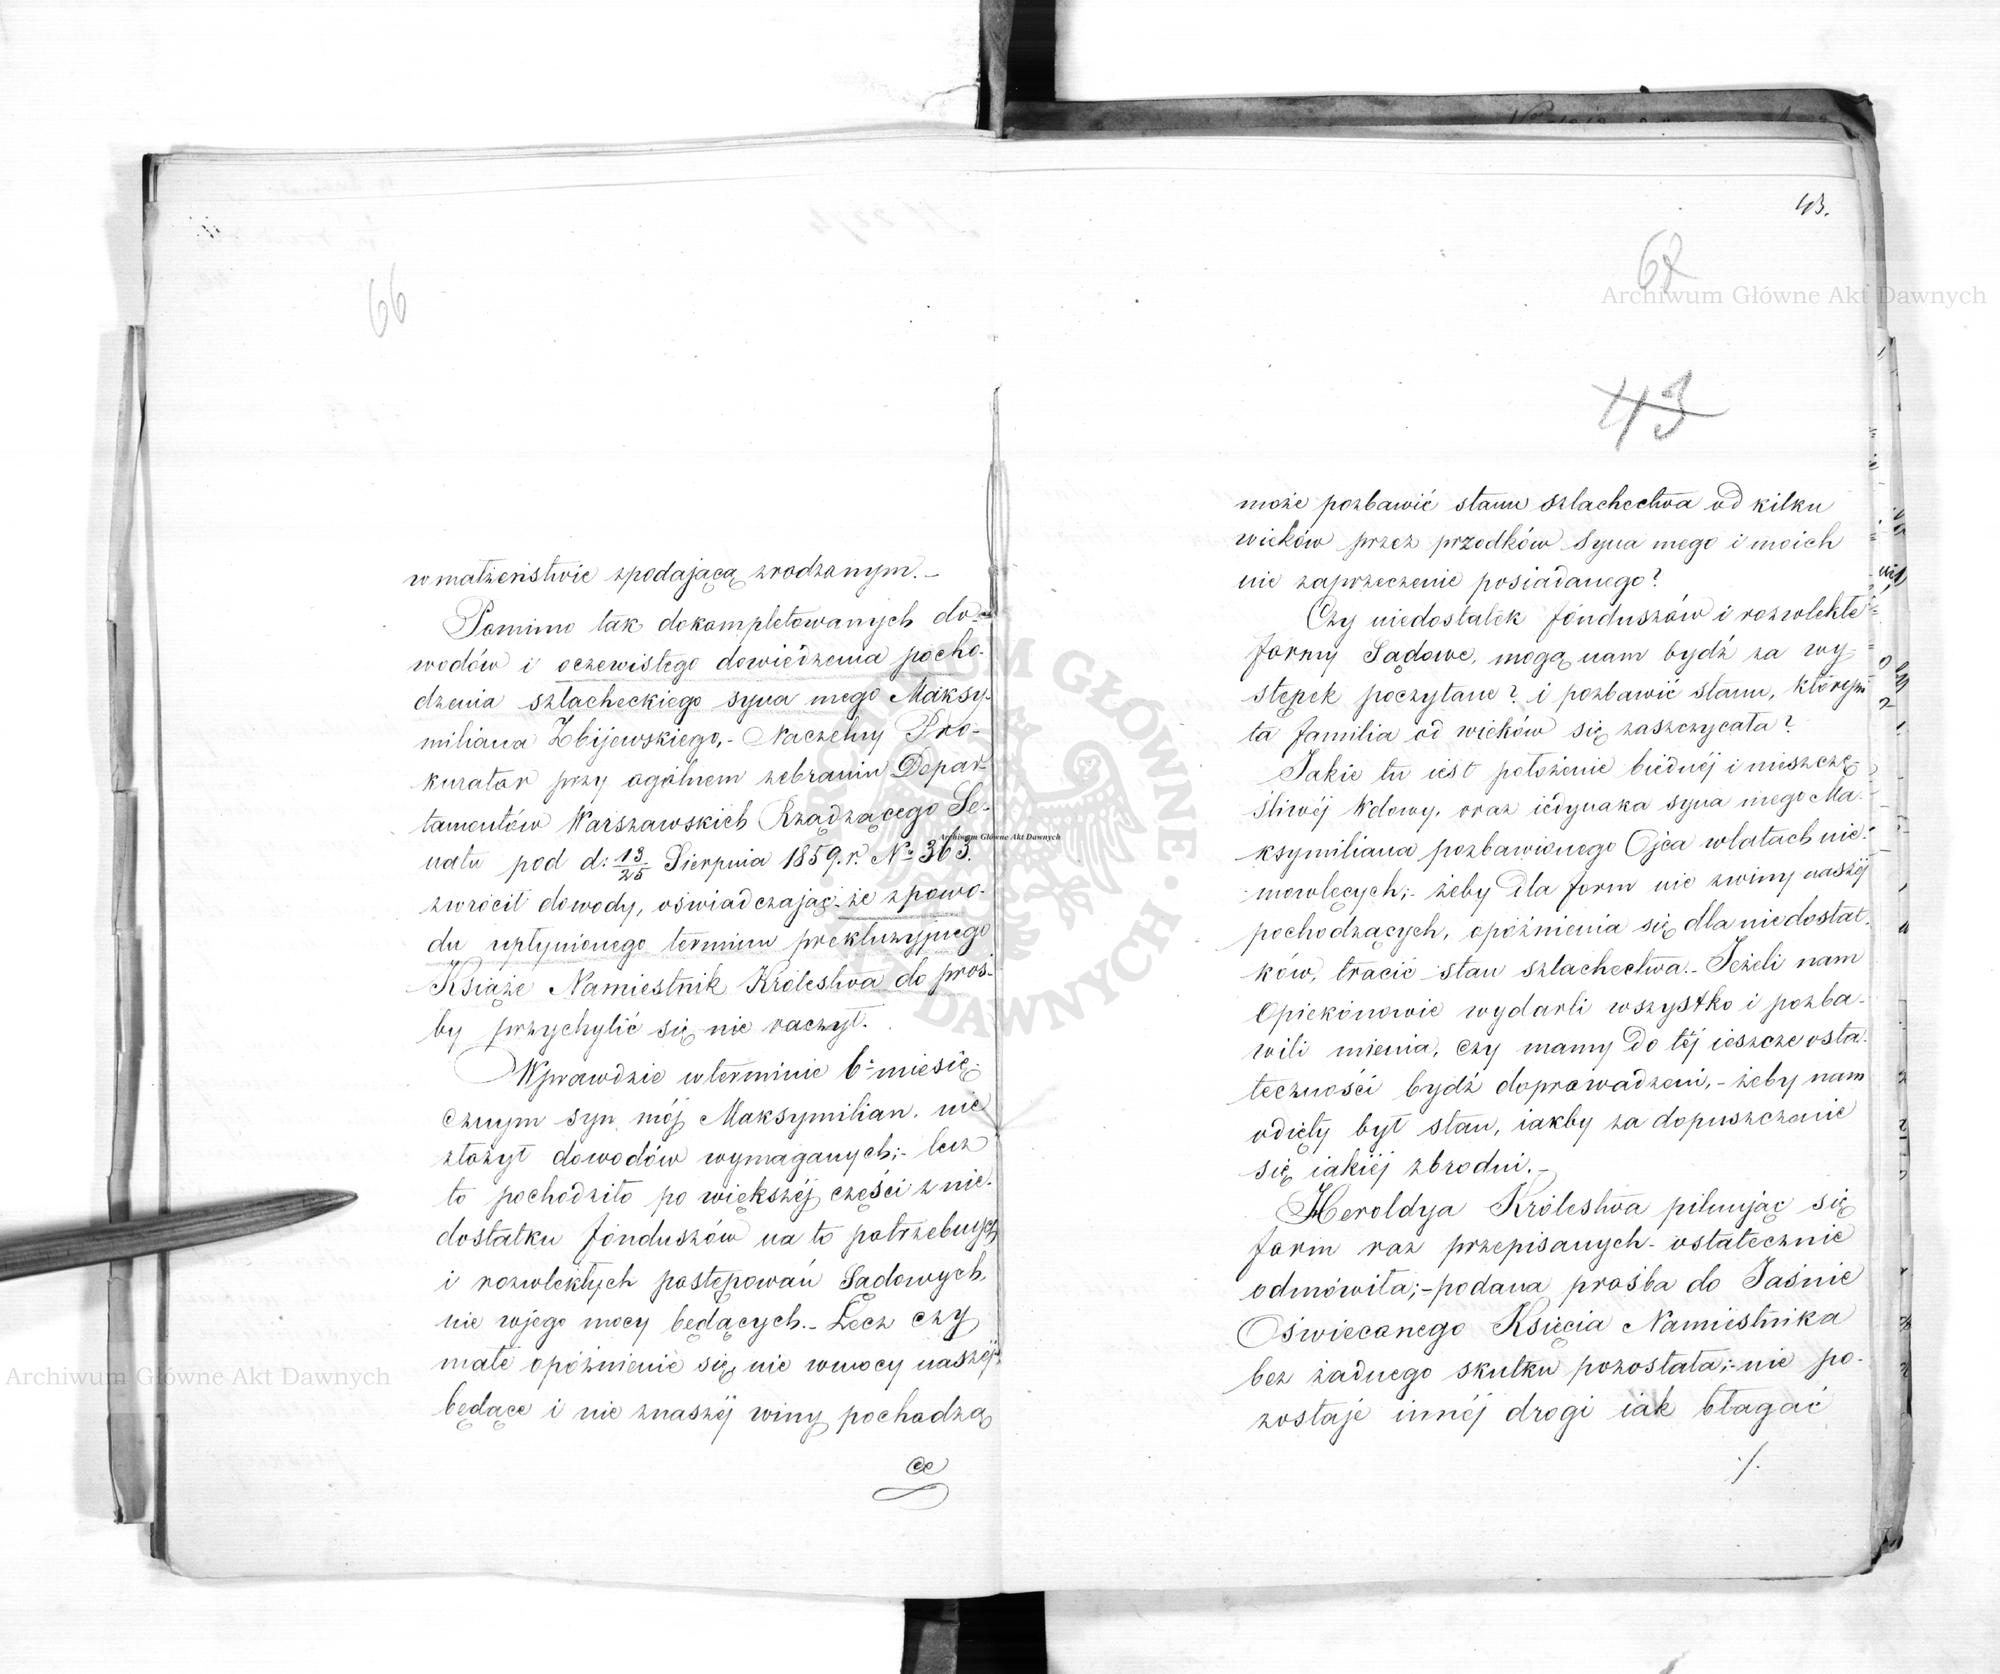 66
w małżeństwie zpodającą zrodzonym. –
Pomimo tak dokompletowanych do-
wodów i oczewistego dowiedzenia pocho-
dzenia szlacheckiego syna mego Maksy-
miliana Zbijewskiego, – Naczelny Pro-
kurator przy ogólnem zebraniu Depar-
tamentów Warszawskich Rządzącego Se-
natu pod d: 13/25 Sierpnia 1859. r. No 363.
zwrócił dowody, oświadczając że zpowo-
du upłynionego terminu prekluzyjnego
Książe Namiestnik Królestwa do proś-
by przychylić się nie raczył.
Wprawdzie w terminie 6-miesię-
cznym syn mój Maksymilian nie
złożył dowodów wymaganych; – lecz
to pochodziło po większéj części z nie-
dostatku fonduszów na to potrzebnych
i rozwlekłych postępowań Sądowych,
nie wjego mocy będących. – Lecz czy
małe opóźnienie się, nie wmocy naszéj
będące i nie znaszéj winy pochodzą
ce
43.
67
43
może pozbawić stanu szlachectwa od kilku
wieków przez przodków syna mego i moich
nie zaprzeczenie posiadanego?
Czy niedostatek fonduszów i rozwlekłe
formy Sądowe, mogą nam bydź za wy-
stępek poczytane? i pozbawić stanu, którym
ta familia od wieków się zaszczycała?
Jakie tu iest położenie biednéj i nieszczę-
śliwéj Wdowy, oraz iedynaka syna mego Ma-
ksymiliana pozbawionego Ojca wlatach nie-
mowlęcych; – żeby dla form nie zwiny naszéj
pochodzących, opóźnienia się dla niedostat-
ków, tracić stan szlachectwa. – Jeżeli nam
Opiekónowie wydarli wszystko i pozba-
wili mienia, czy mamy do téj ieszcze osta-
teczności bydź doprowadzeni, – żeby nam
odięty był stan, iakby za dopuszczenie
się iakiéj zbrodni. –
Heroldya Królestwa pilnując się
form raz przepisanych – ostatecznie
odmówiła; – podana prośba do Jaśnie
Oświeconego Księcia Namiestnika
bez żadnego skutku pozostała; – nie po-
zostaje innéj drogi iak błagać
./.
Archiwum Główne Akt Dawnych
Archiwum Główne Akt Dawnych
Archiwum Główne Akt Dawnych